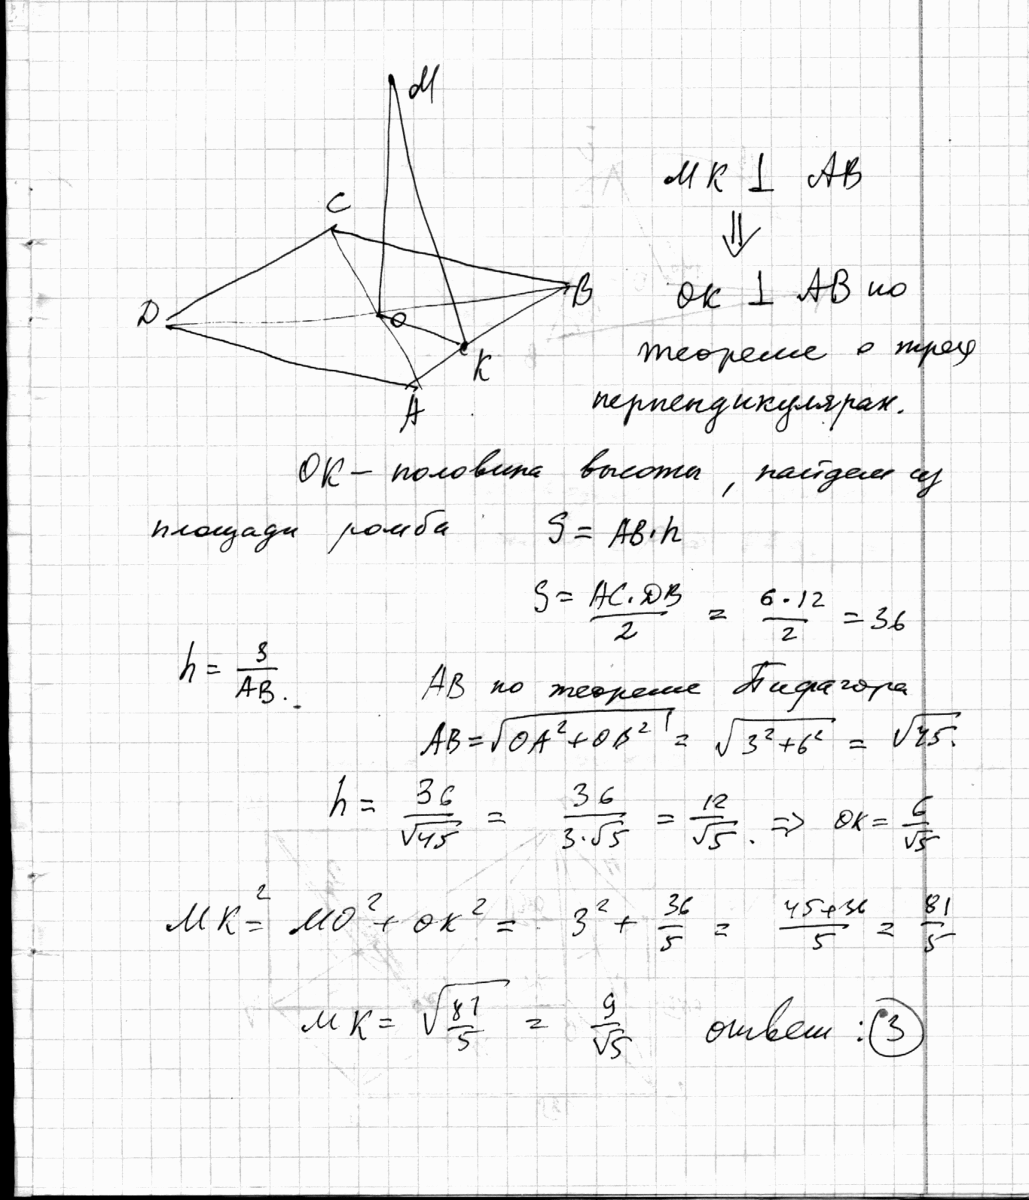 M
C
D
B
O
K
A
MK ⊥ AB
⇓
OK ⊥ AB по
теореме о трех
перпендикулярах.
OK – половина высоты, найдем из
площади ромба S = AB·h
S = AC·DB/2 = 6·12/2 = 36
h = S/AB.
AB по теореме Пифагора
AB = √(OA² + OB²) = √(3² + 6²) = √45.
h = 36/√45 = 36/(3·√5) = 12/√5. => OK = 6/√5
MK² = MO² + OK² = 3² + 36/5 = (45+36)/5 = 81/5
MK = √(81/5) = 9/√5 ответ: 3